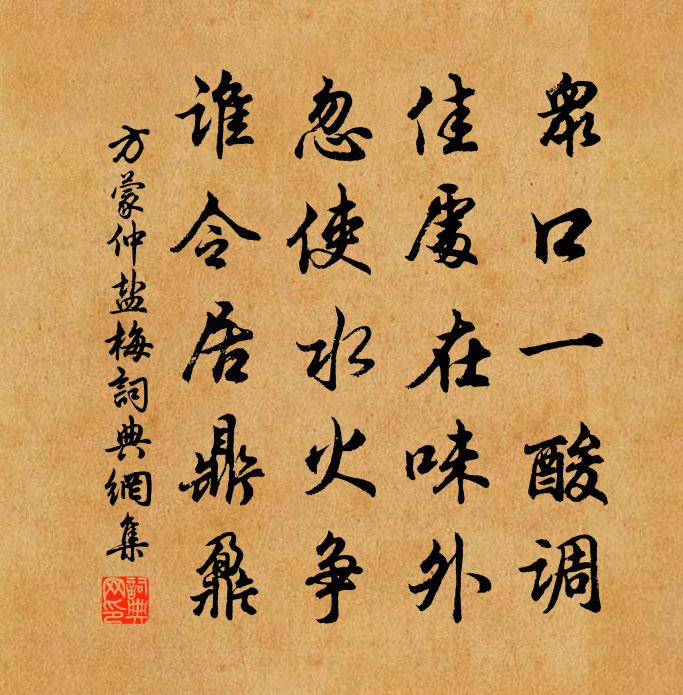 眾口一酸調
佳處在味外
忽使水火争
谁令居鼎鼐
方蒙仲盐梅詞典網集
詞典网印